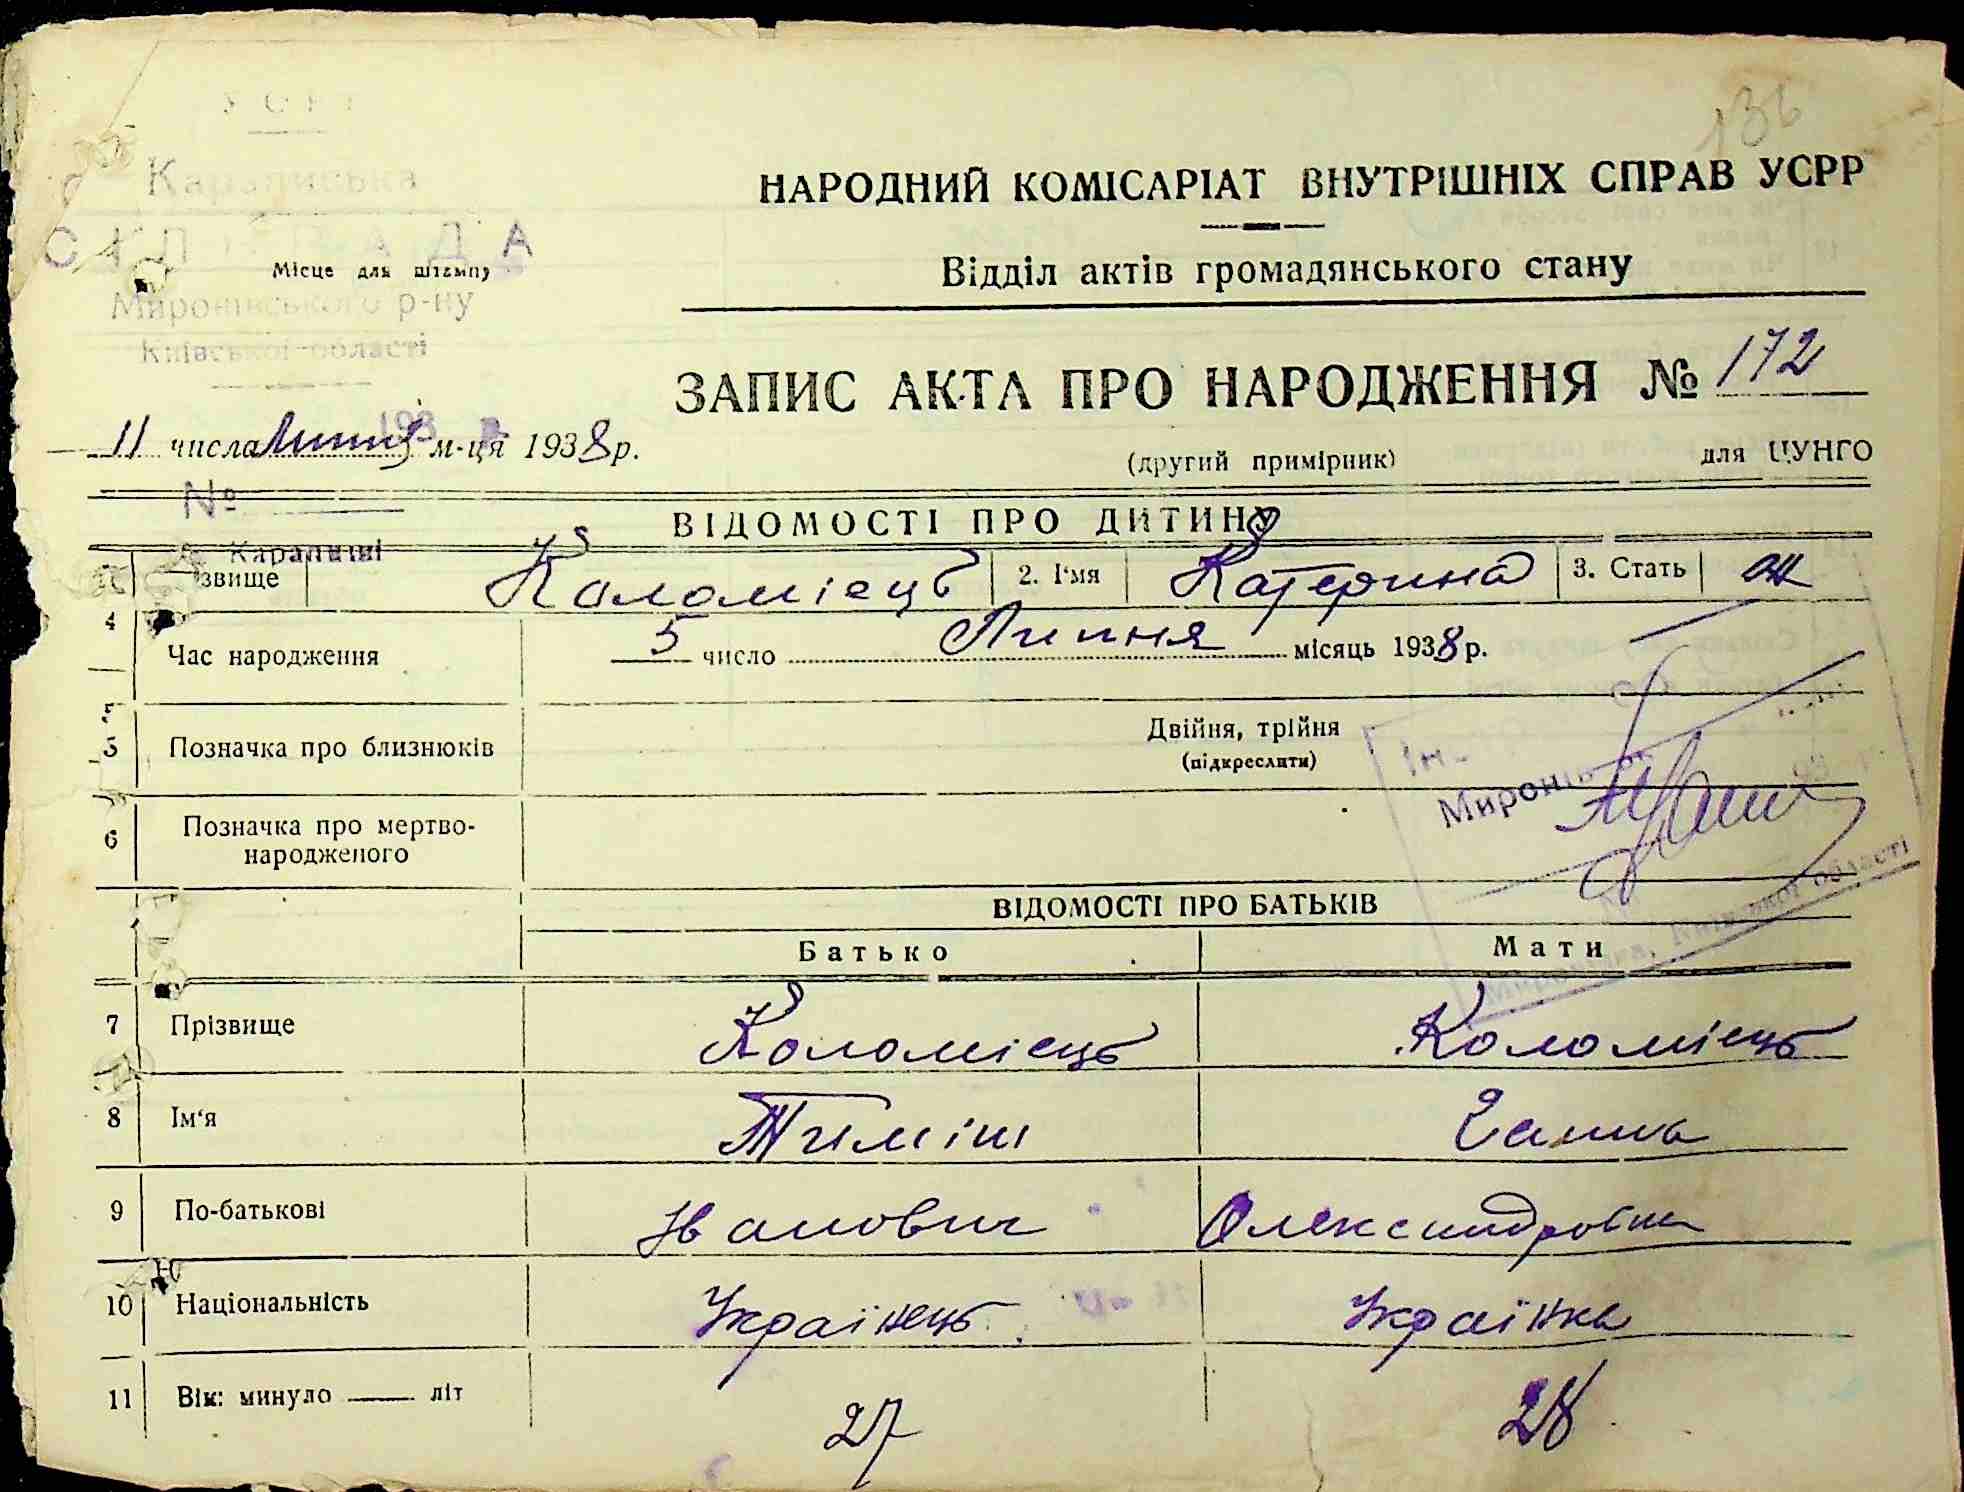 136
УСРР
Караписька
СІЛЬРАДА
Миронівського р-ну
Київської області
193 р.
№
с. Карапиші
Місце для штампу
НАРОДНИЙ КОМІСАРІАТ ВНУТРІШНІХ СПРАВ УСРР
Відділ актів громадянського стану
ЗАПИС АКТА ПРО НАРОДЖЕННЯ № 172
11 числа Липня м-ця 1938 р.
(другий примірник) для ЦУНГО
ВІДОМОСТІ ПРО ДИТИНУ
звище Коломієць 2. І'мя Катерина 3. Стать ж
4 Час народження 5 число Липня місяць 1938 р.
5 Позначка про близнюків Двійня, трійня
(підкреслити)
6 Позначка про мертво-
народженого
Миронівка, Київської області
ВІДОМОСТІ ПРО БАТЬКІВ
Батько Мати
7 Прізвище Коломієць Коломієць
8 Ім'я Тиміш Ганна
9 По-батькові Іванович Олександровна
10 Національність Українець Українка
11 Вік: минуло літ 27 28